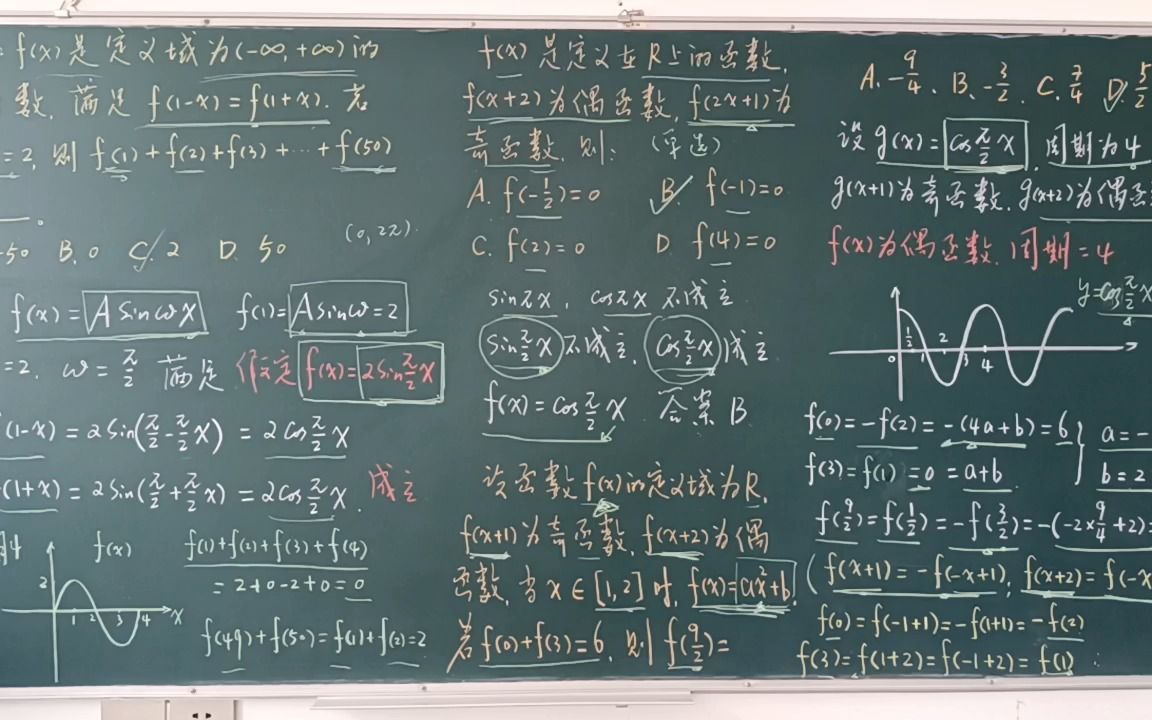 f(x)是定义域为(-∞,+∞)的
数,满足 f(1-x)=f(1+x). 若
=2,则 f(1)+f(2)+f(3)+…+f(50)
-50 B.0 C.2 D.50 (0,2π).
f(x)=Asinωx f(1)=Asinω=2
=2. ω=π/2 满足 假定 f(x)=2sinπ/2x
(1-x)=2sin(π/2-π/2x)=2cosπ/2x
(1+x)=2sin(π/2+π/2x)=2cosπ/2x. 成立
期4 f(x) f(1)+f(2)+f(3)+f(4)
=2+0-2+0=0
2 1 2 3 4 x
f(49)+f(50)=f(1)+f(2)=2
f(x)是定义在R上的函数,
f(x+2)为偶函数,f(2x+1)为
奇函数,则: (单选)
A. f(-1/2)=0 B. f(-1)=0
C. f(2)=0 D. f(4)=0
sinπx, cosπx 不成立
sinπ/2x 不成立, cosπ/2x 成立
f(x)=cosπ/2x 答案B
设函数f(x)的定义域为R,
f(x+1)为奇函数,f(x+2)为偶
函数,当x∈[1,2]时,f(x)=ax²+b.
若f(0)+f(3)=6,则f(9/2)=
A.-9/4. B.-3/2. C.7/4 D.5/2
设g(x)=cosπ/2x. 周期为4
g(x+1)为奇函数,g(x+2)为偶函
f(x)为偶函数,周期=4
y=cosπ/2x
0 1/2 2 3 4
f(0)=-f(2)=-(4a+b)=6 } a=-
f(3)=f(1)=0=a+b } b=2
f(9/2)=f(1/2)=-f(3/2)=-(-2×9/4+2)=
(f(x+1)=-f(-x+1), f(x+2)=f(-x
f(0)=f(-1+1)=-f(1+1)=-f(2)
f(3)=f(1+2)=f(-1+2)=f(1)